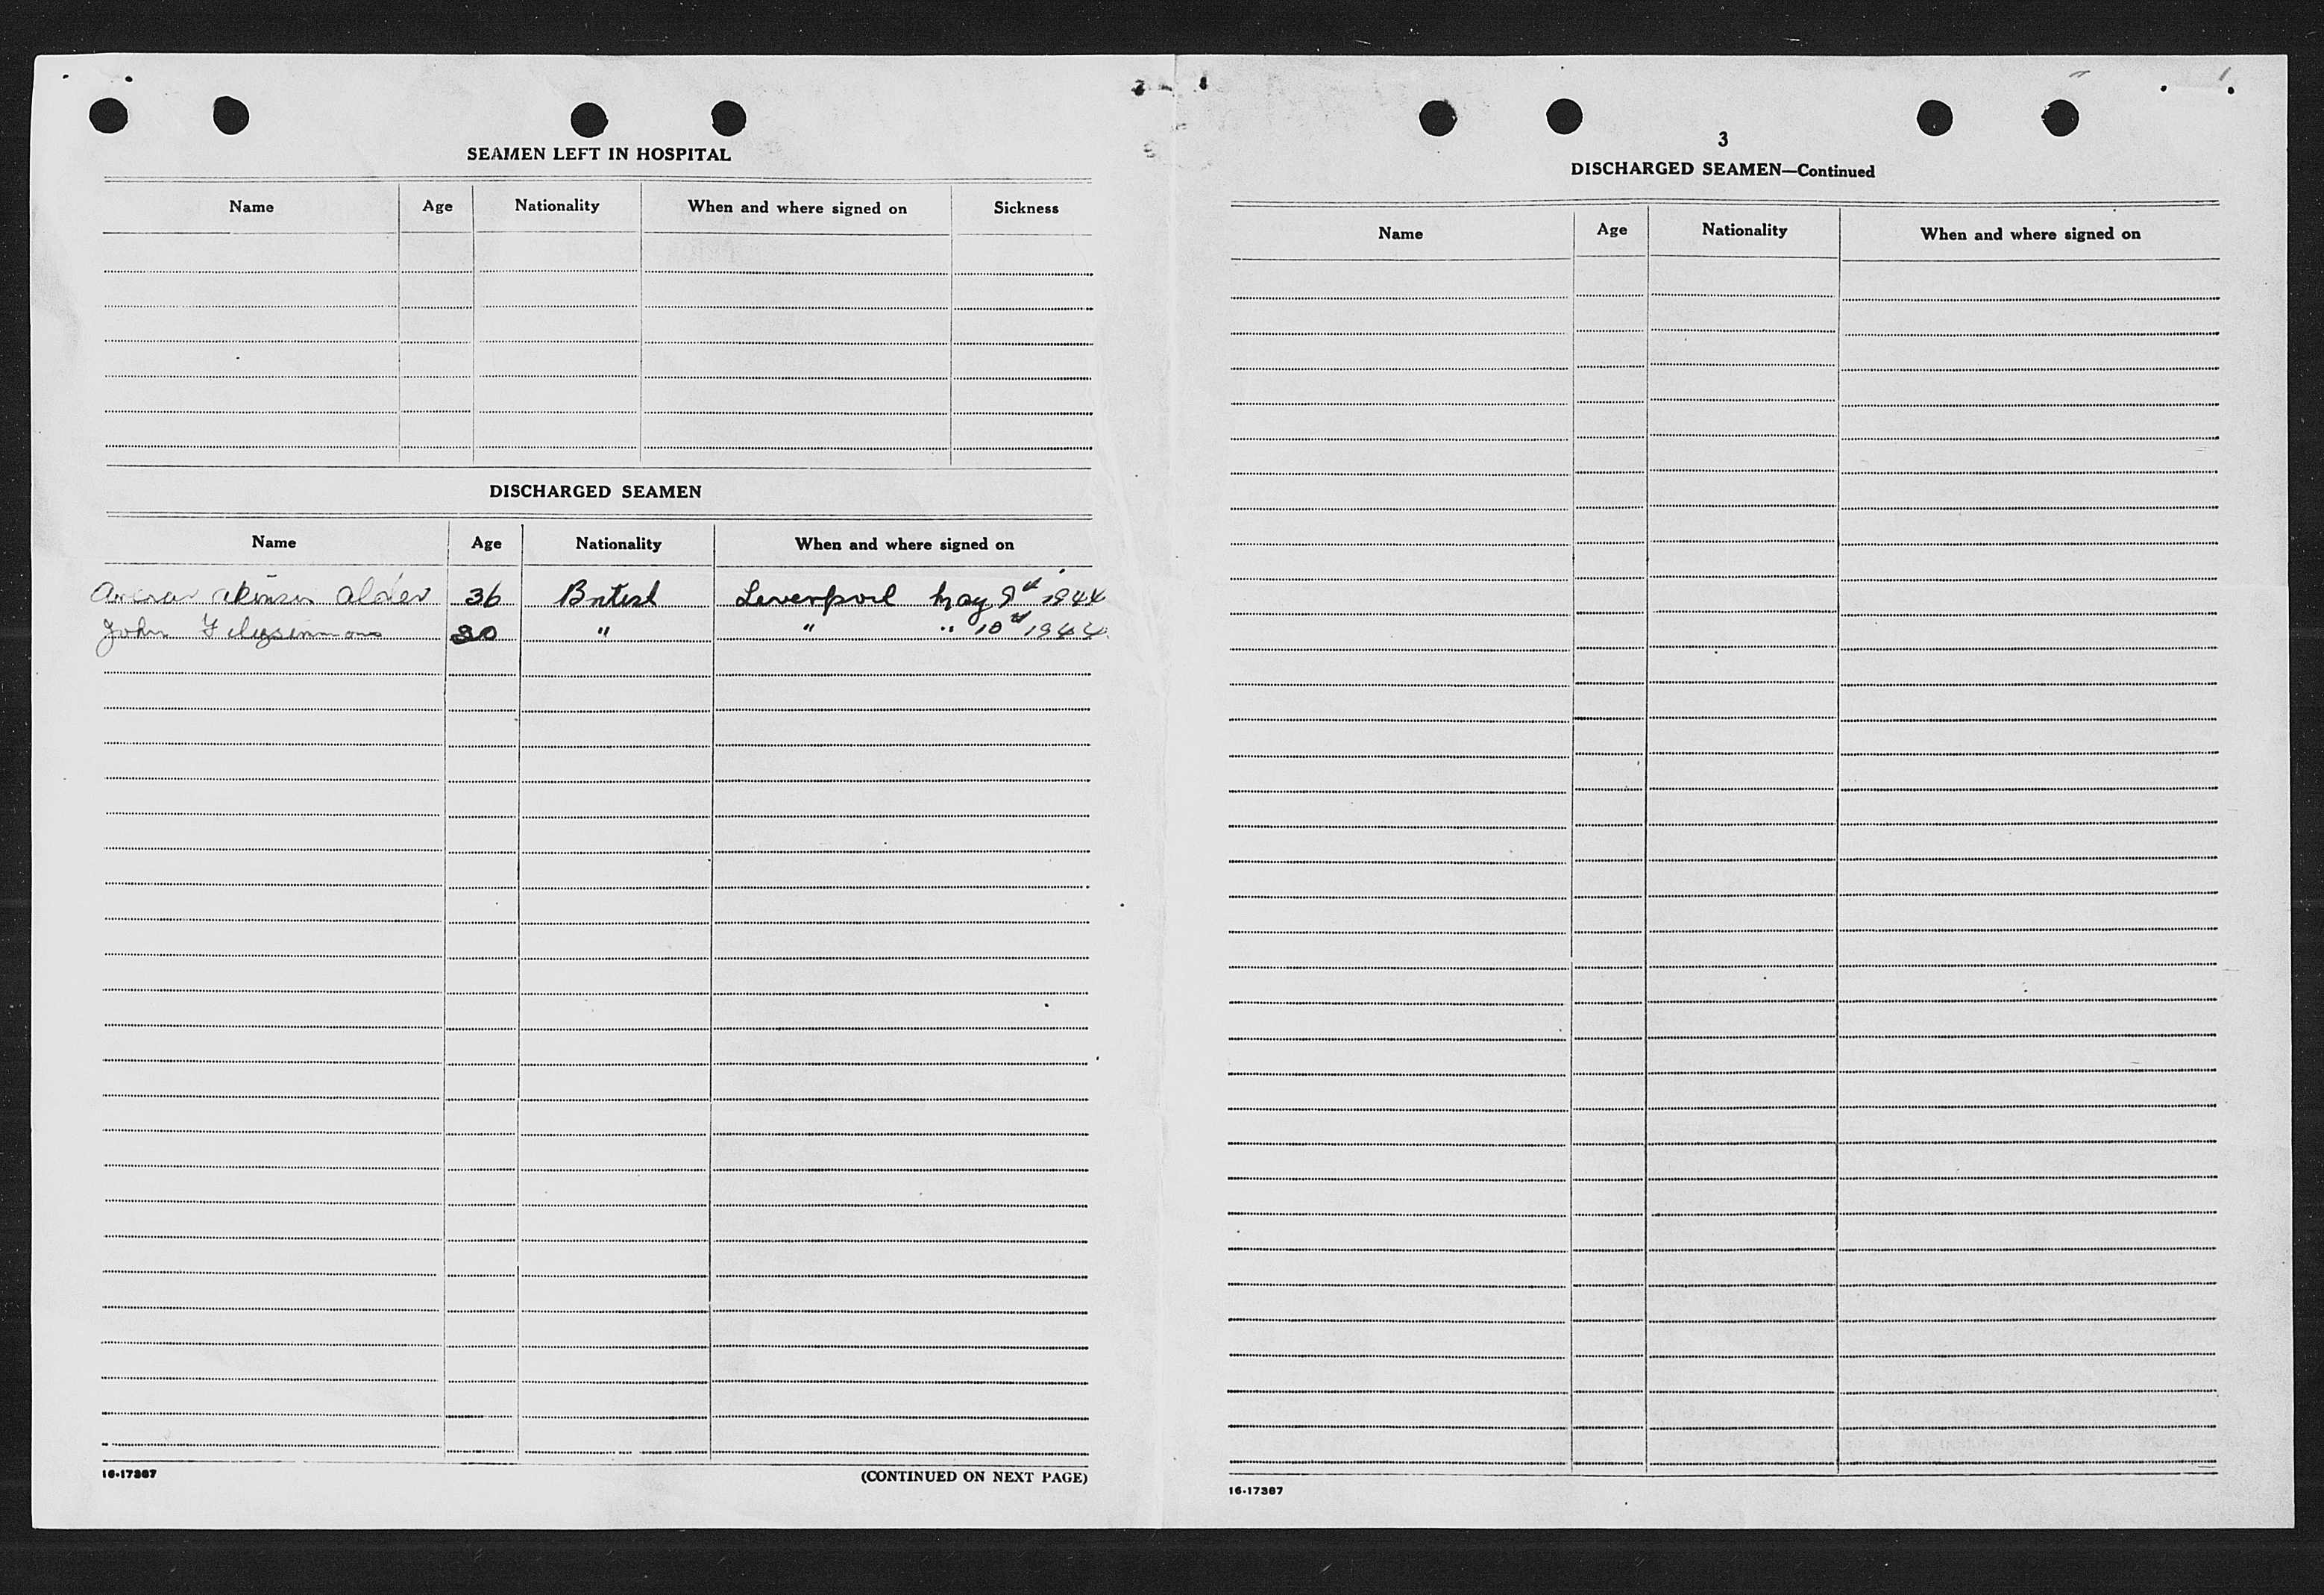 SEAMEN LEFT IN HOSPITAL
Name Age Nationality When and where signed on Sickness
DISCHARGED SEAMEN
Name Age Nationality When and where signed on
Alder 36 British Liverpool May 9th 1944
John 30 " " " 10th 1944
16-17387
(CONTINUED ON NEXT PAGE)
3
DISCHARGED SEAMEN—Continued
Name Age Nationality When and where signed on
16-17387